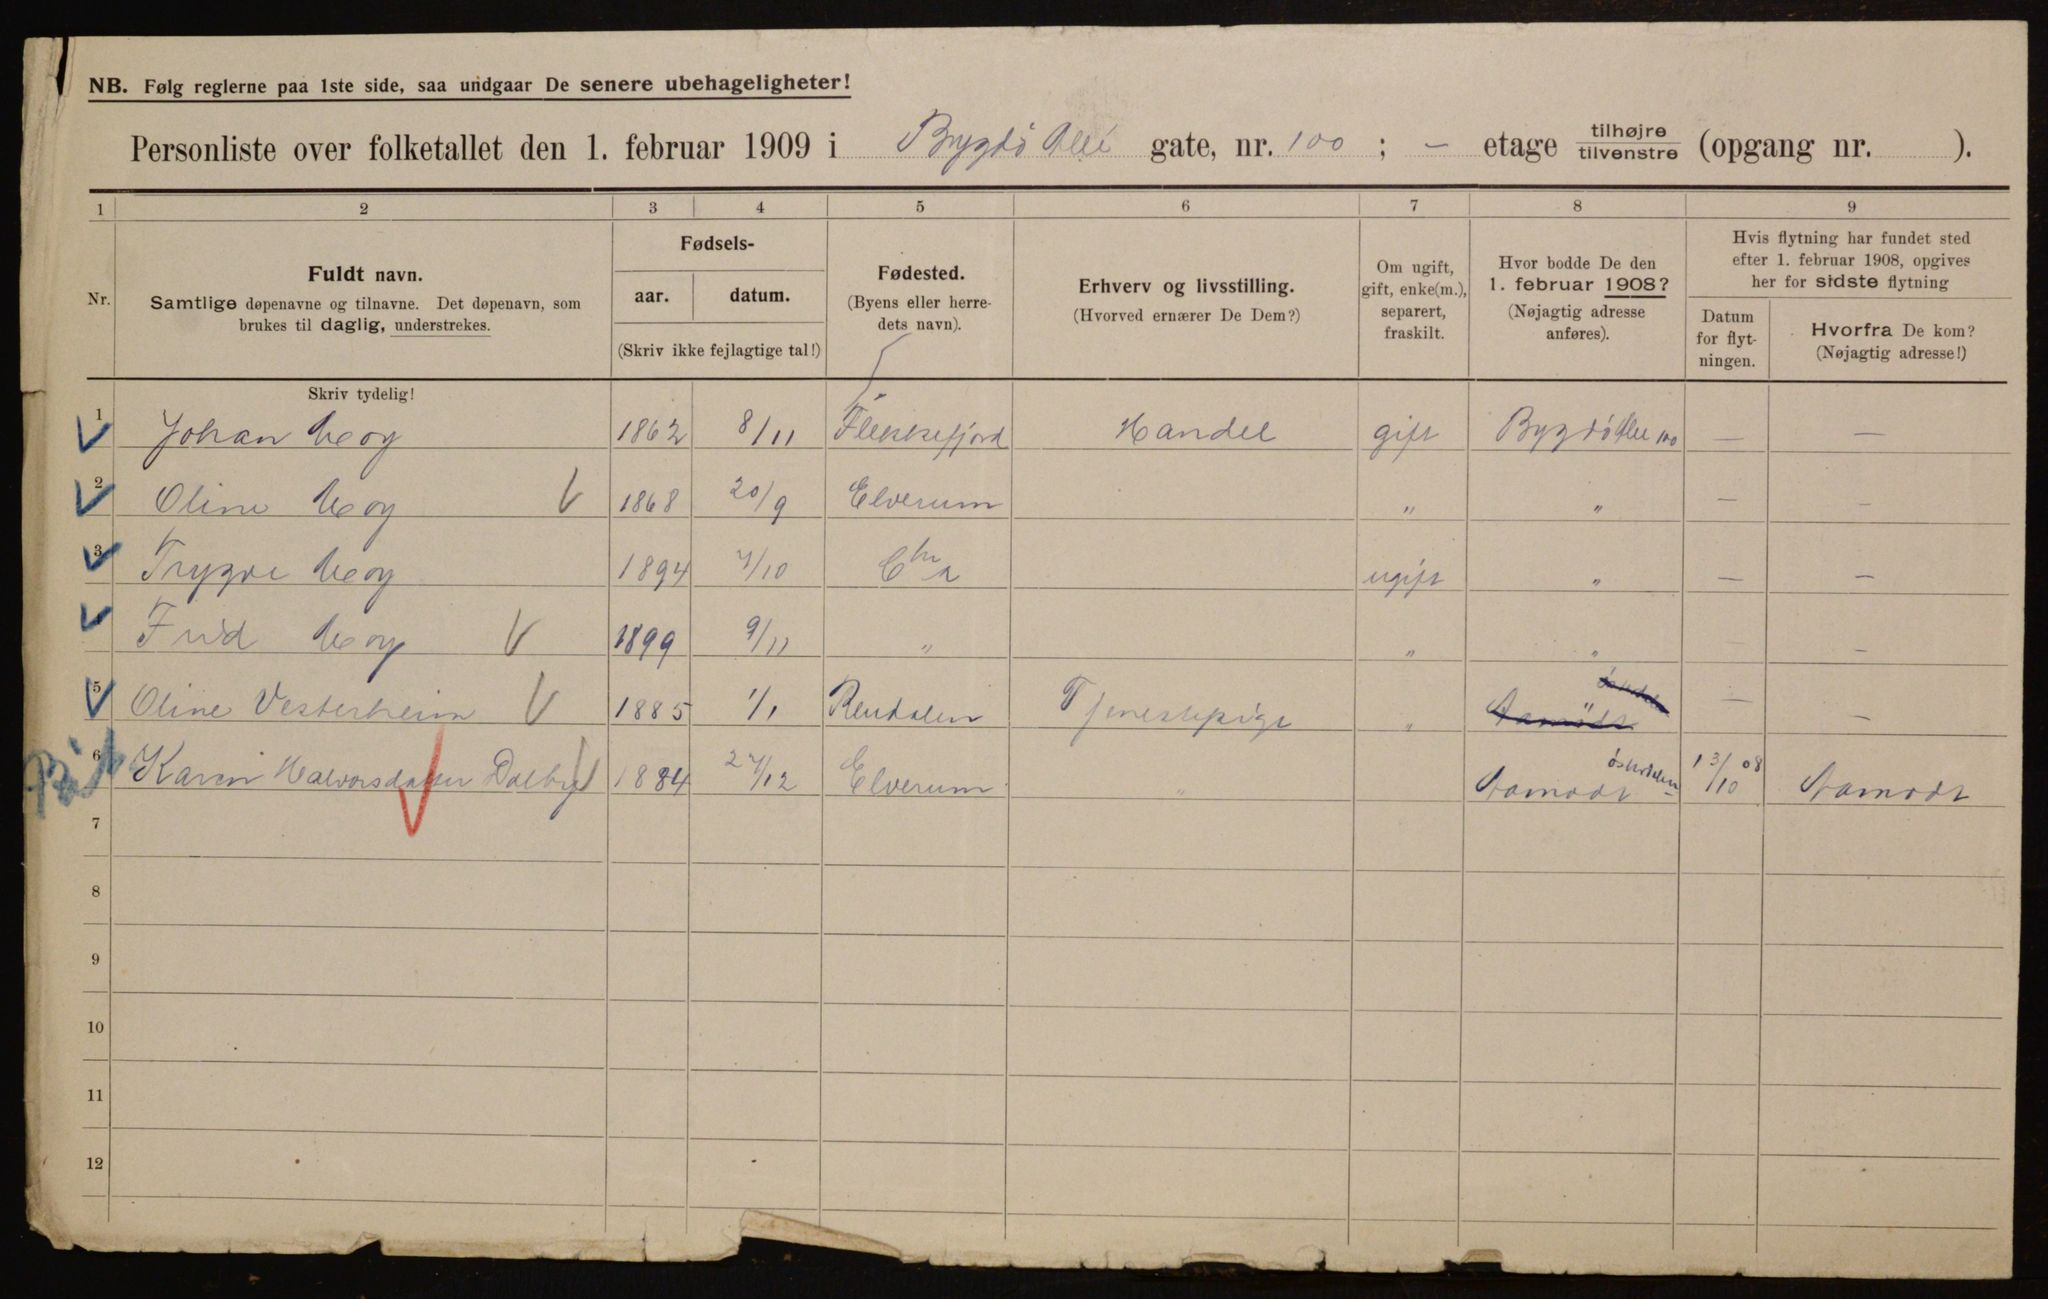 NB. Følg reglerne paa 1ste side, saa undgaar De senere ubehageligheter!
Personliste over folketallet den 1. februar 1909 i Bygdö Allé gate, nr. 100 ; — etage tilhøjre tilvenstre (opgang nr. ).
1 2 3 4 5 6 7 8 9
Nr.
Fuldt navn.
Samtlige døpenavne og tilnavne. Det døpenavn, som
brukes til daglig, understrekes.
Fødsels-
aar. datum.
(Skriv ikke fejlagtige tal!)
Fødested.
(Byens eller herre-
dets navn).
Erhverv og livsstilling.
(Hvorved ernærer De Dem?)
Om ugift,
gift, enke(m.),
separert,
fraskilt.
Hvor bodde De den
1. februar 1908?
(Nøjagtig adresse
anføres).
Hvis flytning har fundet sted
efter 1. februar 1908, opgives
her for sidste flytning
Datum
for flyt-
ningen.
Hvorfra De kom?
(Nøjagtig adresse!)
Skriv tydelig!
1 Johan 1862 8/11 Flekkefjord Handel gift Bygdö Allé 100 — —
2 Oline 1868 20/9 Elverum " " — —
3 Trygve 1894 7/10 Chra ugift " — —
1899 9/11 " " " — —
5 Oline Vesterheim 1885 1/1 Rendalen Tjenestepige " Aamodt österdalen — —
6 Karen Halvorsdatter Dalby 1884 27/12 Elverum " Aamodt österdalen 13/10 08 Aamodt
7
8
9
10
11
12